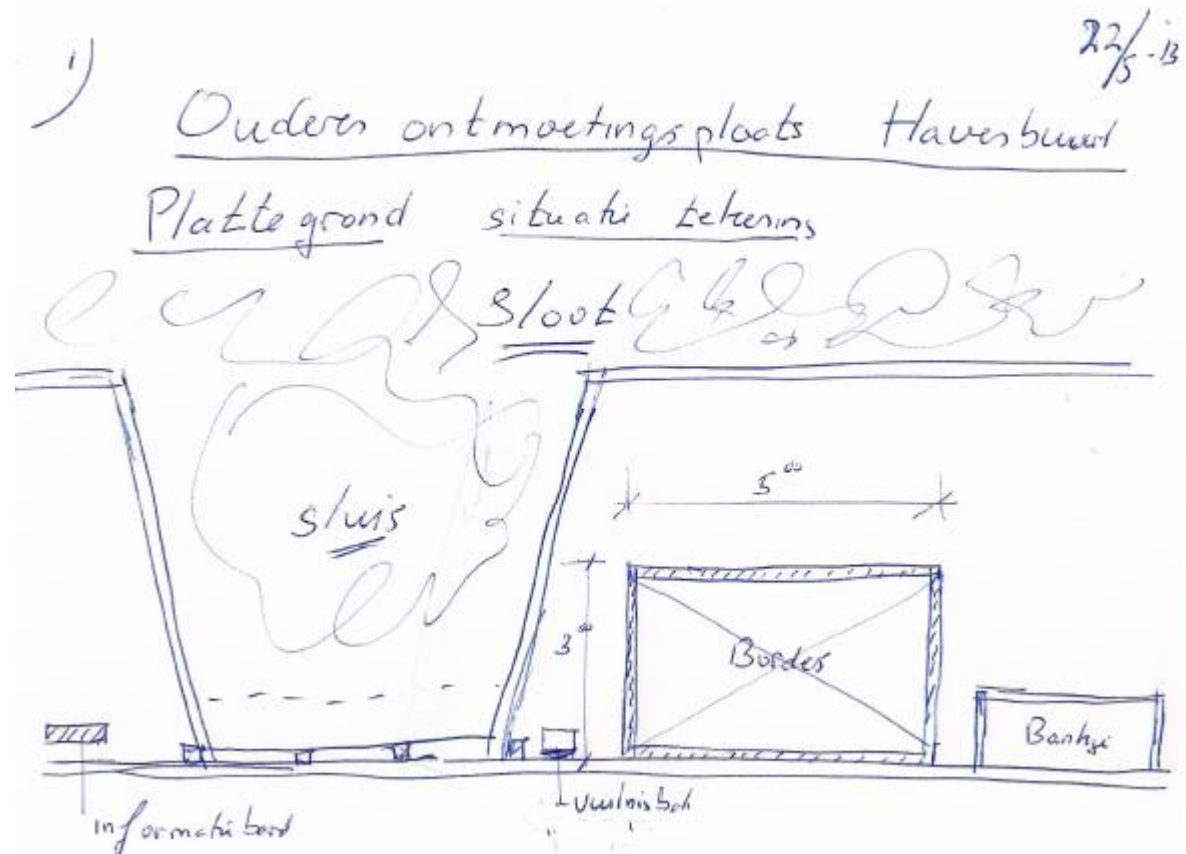 1)
22/5-13
Ouderen ontmoetingsplaats Havenbuurt
Platte grond situatie tekening
Sloot
sluis
5⁰⁰
3⁰⁰
Border
Bankje
informatie bord
vuilnisbak